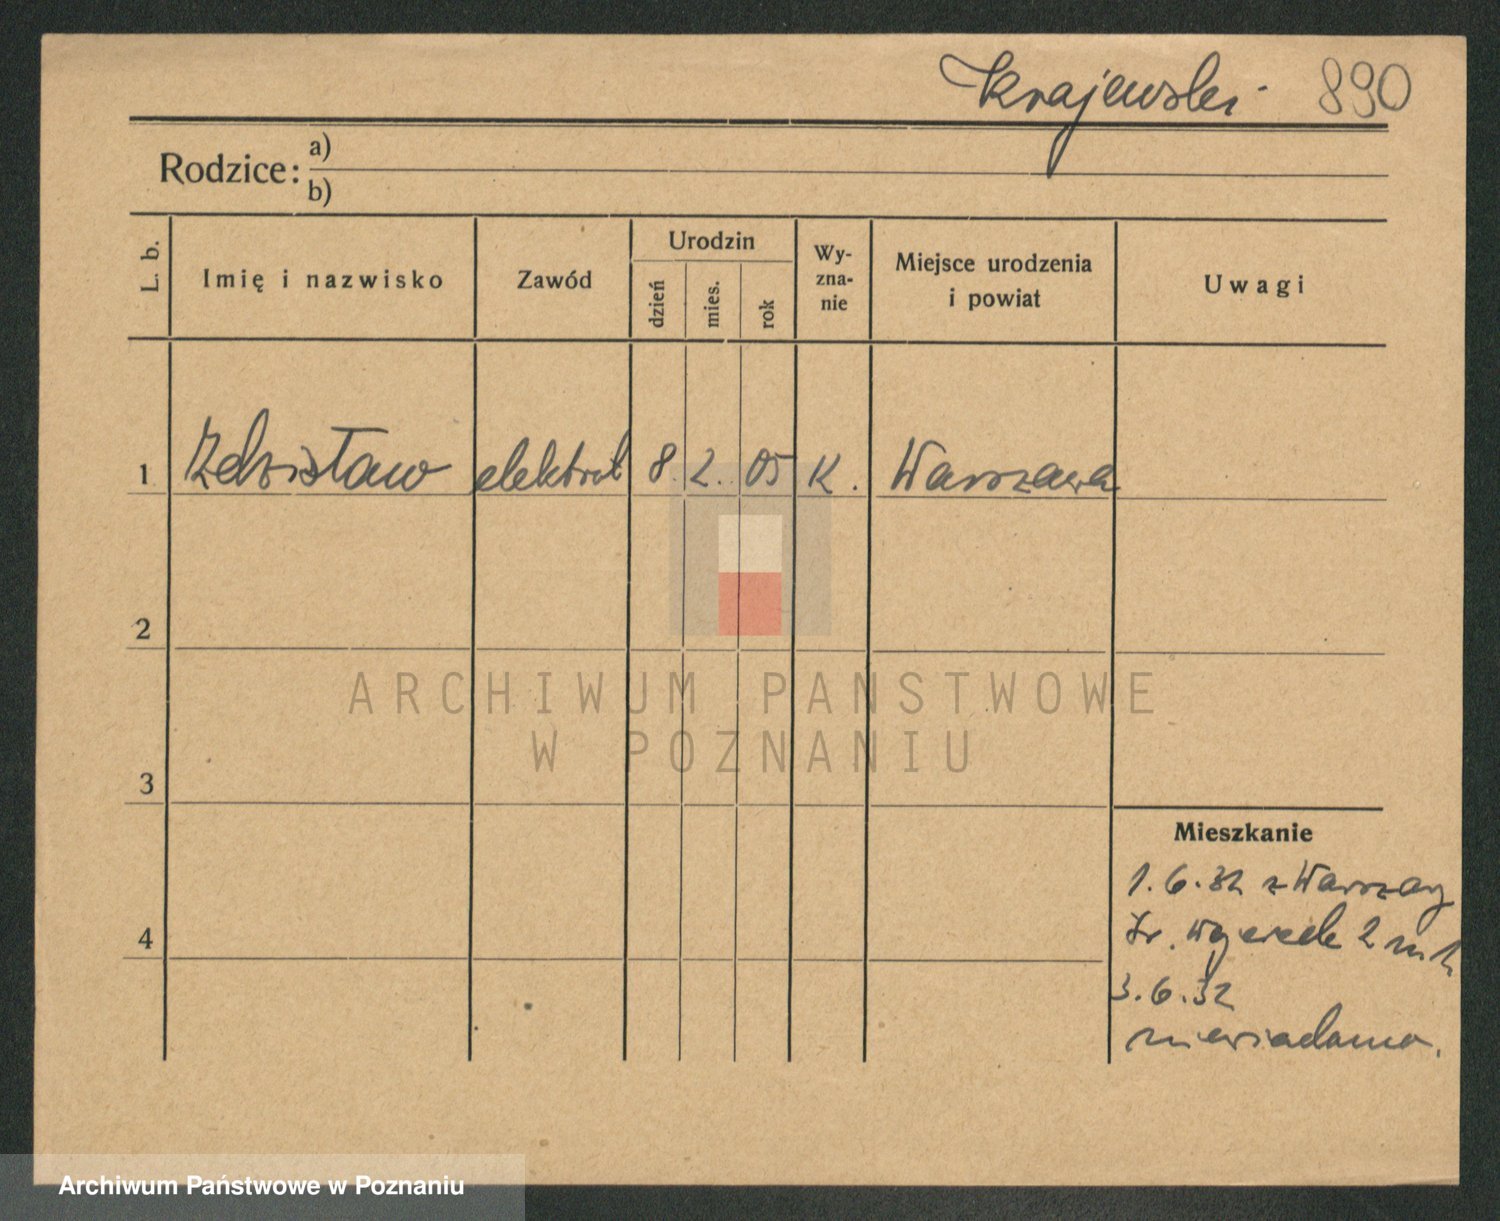 Krajewski 890
Rodzice: a)
b)
L. b. Imię i nazwisko Zawód Urodzin dzień mies. rok Wyznanie Miejsce urodzenia i powiat Uwagi
1 Zdzisław 8. 2. 05 K. Warszawa
2
3
4
Mieszkanie
1.6.32 z Warszawy
2
3.6.32
niewiadomo.
ARCHIWUM PAŃSTWOWE
W POZNANIU
Archiwum Państwowe w Poznaniu